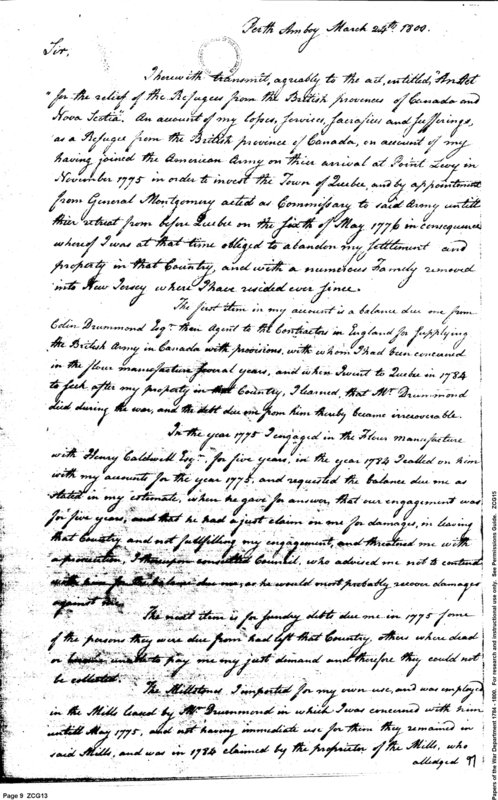 Perth Amboy March 24th. 1800.
Sir,
I herewith transmit, agreably to the act, entitled, "An Act
"for the relief of the Refugees from the British provences of Canada and
Nova Scotia". An account of my losses, services, sacrafices and sufferings,
as a Refugee from the British provence of Canada, on account of my
having joined the American Army on thier arrival at Point Levy in
November 1775 in order to invest the Town of Quebec, and by appointment
from General Montgomery acted as Commissary to said Army untill
thier retreat from before Quebec on the sixth of May 1776 in consequence
whereof I was at that time obliged to abandon my settlement and
property in that Country, and with a numerous Family removed
into New Jersey where I have resided ever since.
The first item in my account is a balance due me from
Colin Drummond Esqr. then Agent to the Contractors in England for supplying
the British Army in Canada with provisions, with whom I had been concerned
in the flour manufacture several years, and when I went to Quebec in 1784
to seek after my property in that Country, I learned, that Mr. Drummond
died during the war, and the debt due me from him thereby became irrecoverable.
In the year 1775 I engaged in the Flour manufacture
with Henry Caldwell Esqr. for five years, in the year 1784 I called on him
with my accounts for the year 1775, and requested the balance due me as
stated in my estimate, when he gave for answer, that our engagement was
for five years, and that he had a just claim on me for damages, in leaving
that Country and not fullfilling my engagement, and threatned me with
a prosecution, I thereupon consulted Council, who advised me not to contend
with him for the balance due me, as he would most probably recover damages
against me.
The next item is for sundry debts due me in 1775 some
of the persons they were due from had left that Country, others where dead
or unable to pay me my just demand and therefore they could not
be collected.
The Millstones I imported for my own use, and was employed
in the Mills leased by Mr. Drummond in which I was concerned with him
untill May 1775, and not having immediate use for them they remained in
said Mills, and was in 1784 claimed by the proprietor of the Mills, who
alledged
Page 9 ZCG13
Papers of the War Department 1784 - 1800. For research and instructional use only. See Permissions Guide. ZCG15